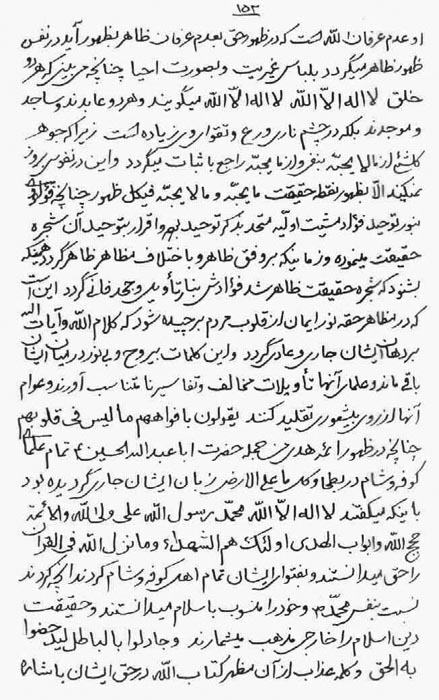 ۱۵۲
او عدم عرفان الله است که در ظهور حق بعدم عرفان ظاهر بظهور آید در نفس
ظهور ظاهر میگردد بلباس غیریت و بصورت احیا چنانچه می بینی که هر دو
خلق لا اله الا الله لا اله الا الله میگویند و هر دو عابدند و ساجد
و موحدند بلکه در چشم ناری ورع و تقوای وی زیاده است زیرا که جوهر
کلشئ از ما لا یحبّه بنفی و از ما یحبّه راجع باثبات میگردد و این در نفوس بروز
نمیکند الّا بظهور نقطه حقیقت ما یحبّه و ما لا یحبّه فیکل ظهور چنانچه
بنور توحید فؤاد مشیت اولیه متحد بذکر توحید بوده و اقرار بتوحید آن شجره
حقیقت مینموده و زمانیکه بر وفق ظاهر و باختلاف مظاهر ظاهر گردد همینکه
بشنود که شجره حقیقت ظاهر شد فؤادش بنار تأویل و جحد فانی گردد این است
که در مظاهر حقه نور ایمان از قلوب مردم برچیده شود که کلام الله و آیات الهیه
بر دهان ایشان جاری و عادی گردد و این کلمات بیروح و بی نور در میان ایشان
باقی ماند و علمای آنها تأویلات مخالف و تفاسیر نامتناسب آورند و عوام
آنها از روی بیشعوری تقلید کنند یقولون بافواههم ما لیس فی قلوبهم
چنانچه در ظهور ائمه هدی من جمله حضرت ابا عبد الله الحسین ع تمام علمای
کوفه و شام در بطحا و کل ما علی الارض زبان ایشان جاری گردیده بود
باینکه میگفتند لا اله الا الله محمّد رسول الله علی ولی الله و الائمة
حجج الله و ابواب الهدی اولئک هم الشهداء و ما نزل الله فی القرآن
را حق میدانستند و بفتوای ایشان تمام اهل کوفه و شام کردند آنچه کردند
نسبت بنفس محمّد ص و خود را منسوب باسلام میدانستند و حقیقت
دین اسلام را خارجی مذهب میشمارند و جادلوا بالباطل لیدحضوا
به الحق و کلمه عذاب از آن مظهر کتاب الله در حق ایشان باشاره